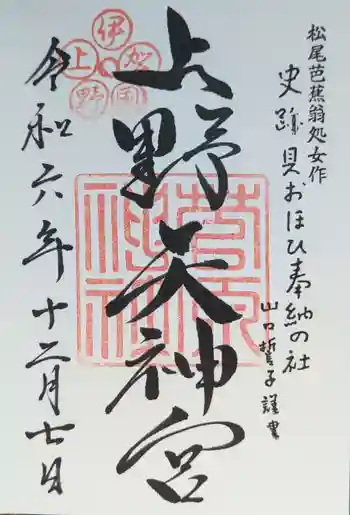 松尾芭蕉翁処女作
史跡 貝おほひ奉納の社
山口誓子謹書
上野天神宮
令和六年十二月七日
伊賀上野